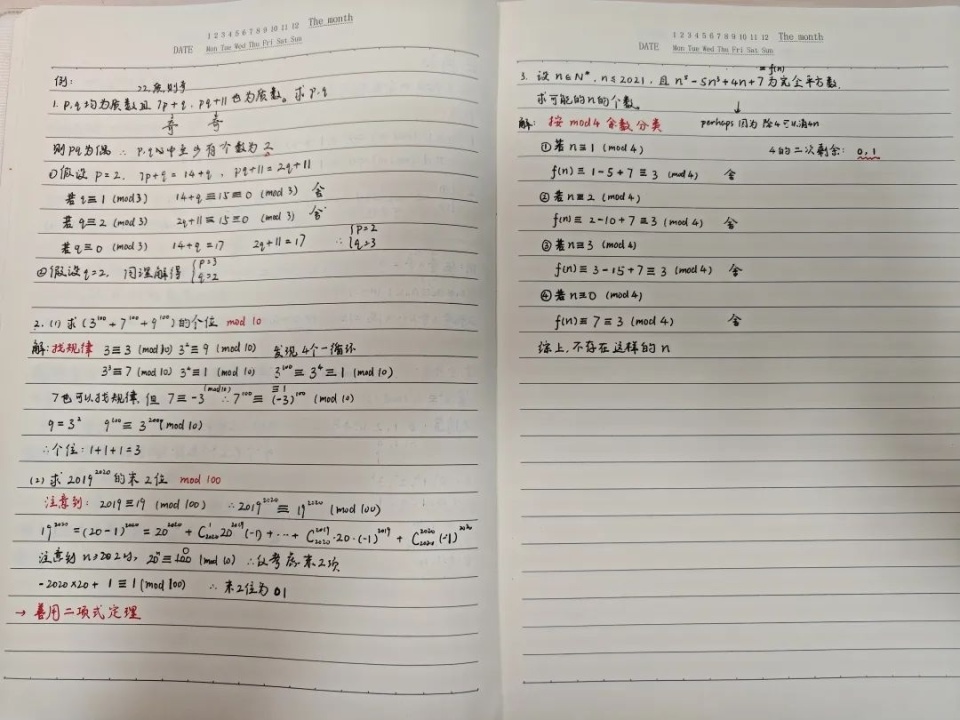 1 2 3 4 5 6 7 8 9 10 11 12 The month
DATE Mon Tue Wed Thu Fri Sat Sun
例:
1. P.q 均为质数且 7p+q , pq+11 也为质数。求 P.q
奇 奇
则 pq 为偶 ∴ P.q 中至少有个数为 2
①假设 p=2, 7p+q = 14+q , pq+11 = 2q+11
若 q≡1 (mod 3) 14+q ≡15≡0 (mod 3) 舍
若 q≡2 (mod 3) 2q+11≡15≡0 (mod 3) 舍
若 q≡0 (mod 3) 14+q =17 2q+11=17 ∴ {p=2 q=3
②假设 q=2, 同理解得 {p=3 q=2
2. (1) 求 (3¹⁰⁰+7¹⁰⁰+9¹⁰⁰) 的个位 mod 10
解: 找规律 3≡3 (mod 10) 3²≡9 (mod 10) 发现 4个一循环
3³≡7 (mod 10) 3⁴≡1 (mod 10) 3¹⁰⁰≡3⁴≡1 (mod 10)
7也可以找规律, 但 7≡-3 (mod 10) ∴7¹⁰⁰≡(-3)¹⁰⁰ ≡1 (mod 10)
9=3² 9¹⁰⁰≡3²⁰⁰ (mod 10)
∴个位: 1+1+1=3
(2) 求 2019²⁰²⁰ 的末2位 mod 100
注意到: 2019≡19 (mod 100) ∴2019²⁰²⁰≡19²⁰²⁰ (mod 100)
19²⁰²⁰=(20-1)²⁰²⁰=20²⁰²⁰+C¹₂₀₂₀20²⁰¹⁹(-1)+…+C²⁰¹⁹₂₀₂₀·20·(-1)²⁰¹⁹+C²⁰²⁰₂₀₂₀(-1)²⁰²⁰
注意到 n≥2时, 20ⁿ≡0 (mod 10) ∴仅考虑末2项
-2020×20+1≡1 (mod 100) ∴末2位为01
→ 善用二项式定理
1 2 3 4 5 6 7 8 9 10 11 12 The month
DATE Mon Tue Wed Thu Fri Sat Sun
= f(n)
3. 设 n∈N*, n≤2021, 且 n⁵-5n³+4n+7 为完全平方数,
求可能的n的个数 ↓
解: 按 mod 4 余数分类 perhaps 因为 除4可以消4n
①若 n≡1 (mod 4) 4的二次剩余: 0,1
f(n)≡1-5+7≡3 (mod 4) 舍
②若 n≡2 (mod 4)
f(n)≡2-10+7≡3 (mod 4) 舍
③若 n≡3 (mod 4)
f(n)≡3-15+7≡3 (mod 4) 舍
④若 n≡0 (mod 4)
f(n)≡7≡3 (mod 4) 舍
综上, 不存在这样的 n